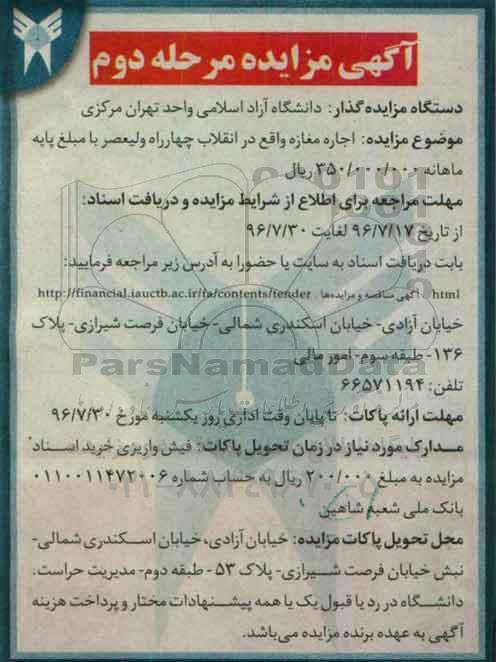 آگهی مزایده مرحله دوم
دستگاه مزایده‌گذار: دانشگاه آزاد اسلامی واحد تهران مرکزی
موضوع مزایده: اجاره مغازه واقع در انقلاب چهارراه ولیعصر با مبلغ پایه
ماهانه ۳۵۰/۰۰۰/۰۰۰ ریال
مهلت مراجعه برای اطلاع از شرایط مزایده و دریافت اسناد:
از تاریخ ۹۶/۷/۱۷ لغایت ۹۶/۷/۳۰
بابت دریافت اسناد به سایت یا حضورا به آدرس زیر مراجعه فرمایید:
http://financial.iauctb.ac.ir/fa/contents/tender . آگهی مناقصه و مزایده‌ها / html
خیابان آزادی- خیابان اسکندری شمالی- خیابان فرصت شیرازی- پلاک
۱۳۶- طبقه سوم- امور مالی
ParsNamadData
تلفن: ۶۶۵۷۱۱۹۴
مهلت ارائه پاکات: تا پایان وقت اداری روز یکشنبه مورخ ۹۶/۷/۳۰
مدارک مورد نیاز در زمان تحویل پاکات: فیش واریزی خرید اسناد
مزایده به مبلغ ۲۰۰/۰۰۰ ریال به حساب شماره ۰۱۱۰۰۱۱۴۷۲۰۰۶
بانک ملی شعبه شاهین
محل تحویل پاکات مزایده: خیابان آزادی، خیابان اسکندری شمالی-
نبش خیابان فرصت شیرازی- پلاک ۵۳ - طبقه دوم- مدیریت حراست.
دانشگاه در رد یا قبول یک یا همه پیشنهادات مختار و پرداخت هزینه
آگهی به عهده برنده مزایده می‌باشد.